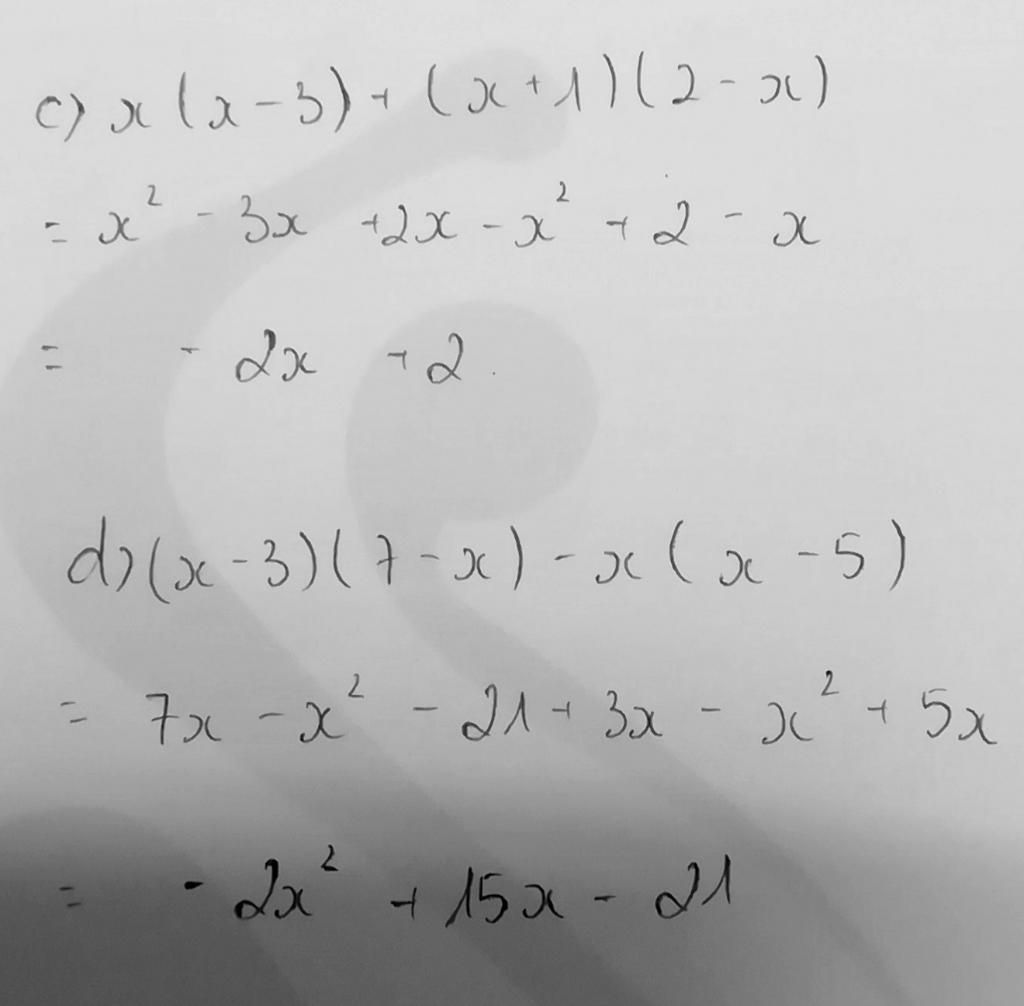 c) x(x-3)+(x+1)(2-x)
= x² - 3x +2x - x² + 2 - x
= - 2x + 2.
d) (x-3)(7-x) - x(x-5)
= 7x - x² - 21 + 3x - x² + 5x
= - 2x² + 15x - 21